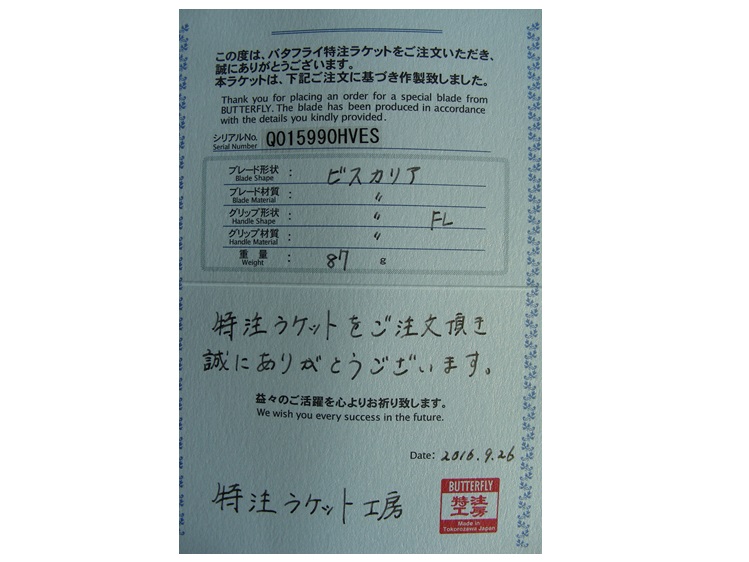 この度は、バタフライ特注ラケットをご注文いただき、
誠にありがとうございます。
本ラケットは、下記ご注文に基づき作製致しました。
Thank you for placing an order for a special blade from
BUTTERFLY. The blade has been produced in accordance
with the details you kindly provided.
シリアルNo.
Serial Number
QO15990HVES
ブレード形状
Blade Shape
: ビスカリア
ブレード材質
Blade Material
: 〃
グリップ形状
Handle Shape
: 〃 FL
グリップ材質
Handle Material
: 〃
重量
Weight
: 87 g
特注ラケットをご注文頂き
誠にありがとうございます。
益々のご活躍を心よりお祈り致します。
We wish you every success in the future.
Date: 2016.9.26
特注ラケット工房
BUTTERFLY
特注
工房
Made in
Tokorozawa Japan